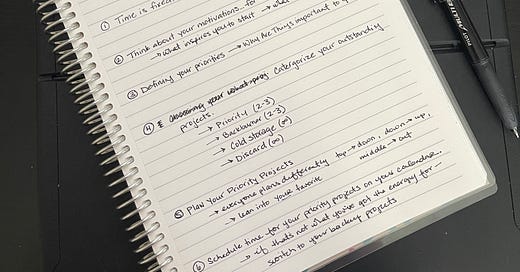 ① Time is
② Think about your motivations... for
→ what inspires you to start → what
③ Defining your priorities → Why Are Things important to y
④ Catergorize your outstanding
projects.
→ Priority (2-3)
→ Backburner (2-3)
→ Cold Storage (∞)
→ Discard (∞)
⑤ Plan Your Priority Projects
→ everyone plans differently top → down, down → up,
middle → out
→ lean into your favorite
⑥ Schedule time for your priority projects on your calendar.
→ if thats not what you've got the energy for —
switch to your backup projects
PILOT